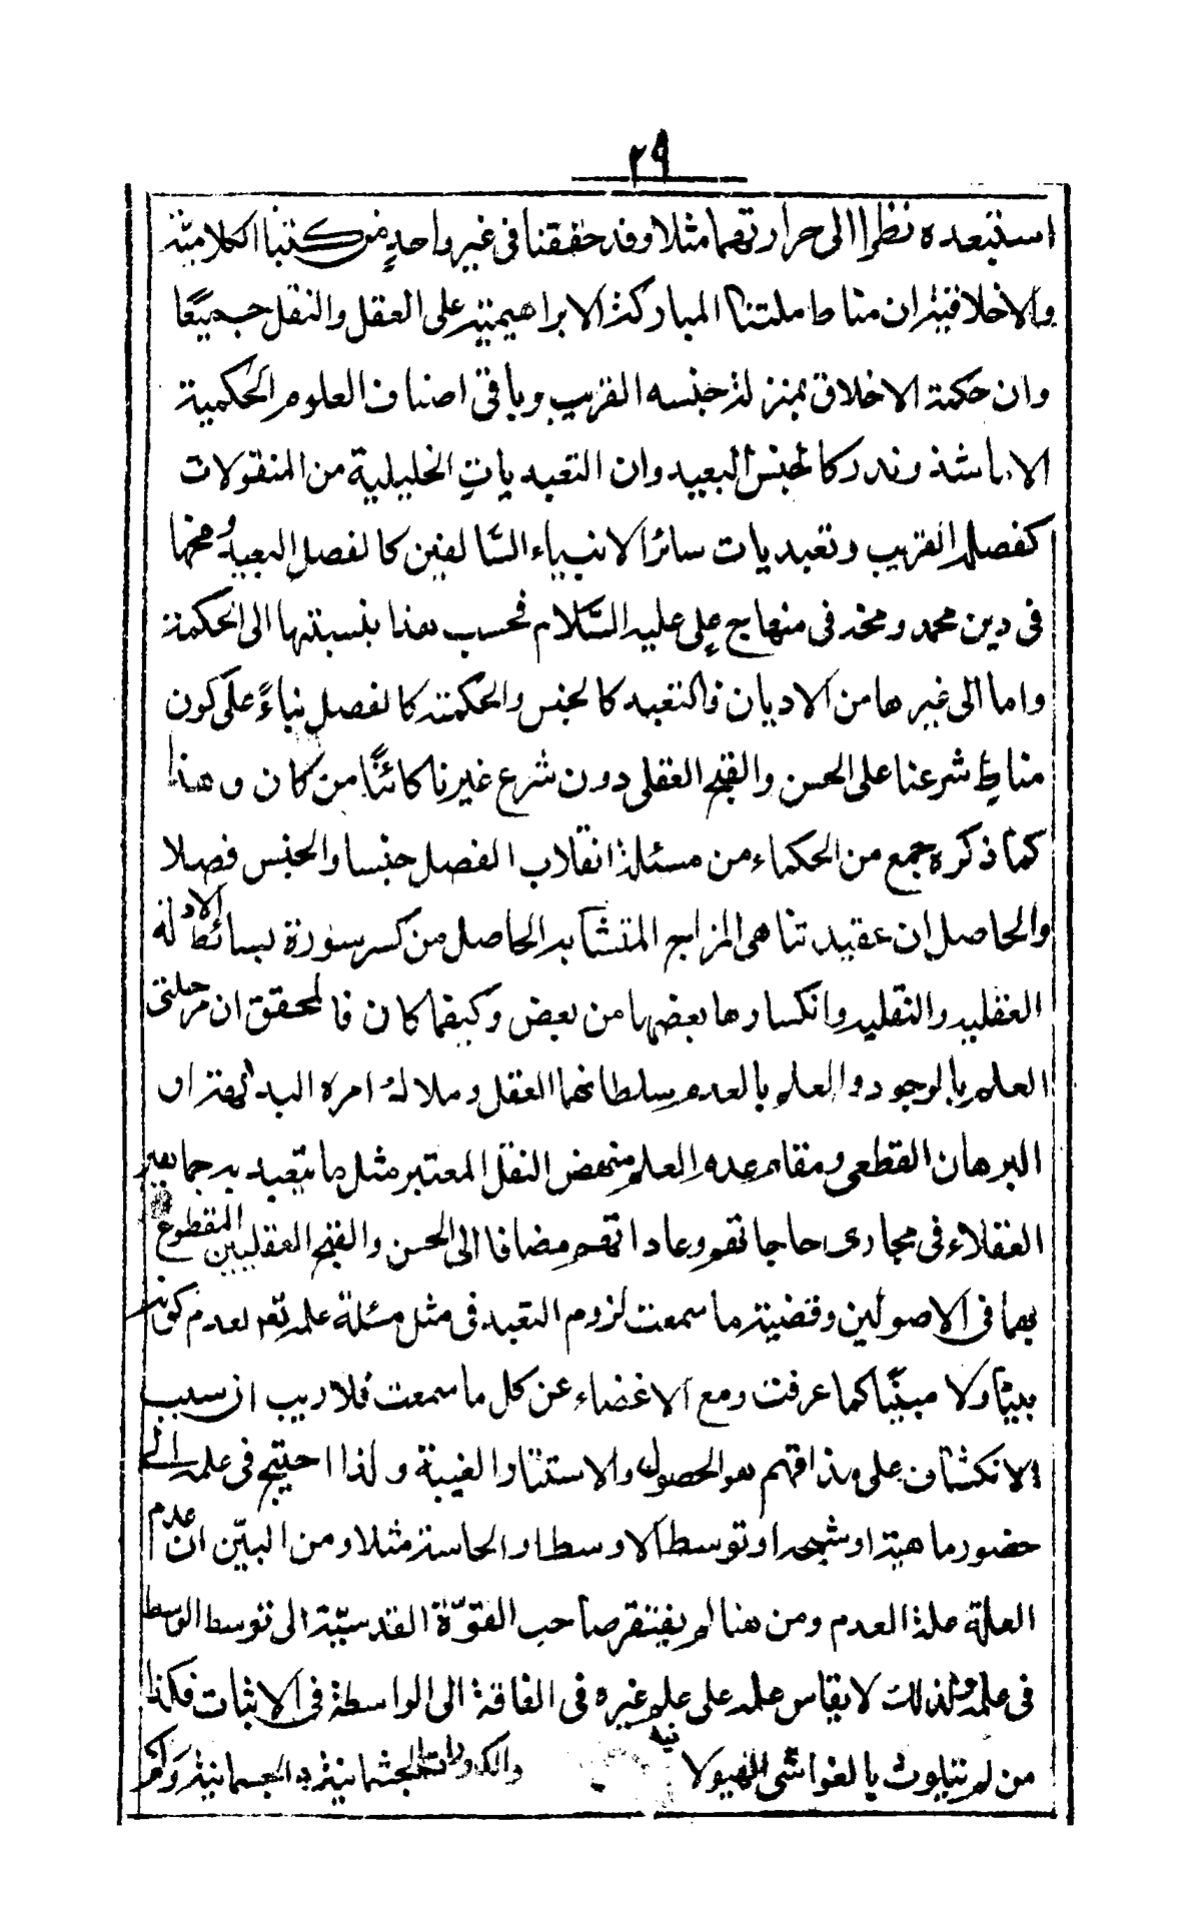 ٢٩
استبعده نظرا الى حرارتهما مثلا وقد حققنا فى غير واحد من كتبنا الكلامية
والاخلاقية ان مناط ملتنا المباركة الابراهيمية على العقل والنقل جميعًا
وان حكمة الاخلاق بمنزلة جنسه القريب وباقى اصناف العلوم الحكمية
الا ما شذ وندر كالجنس البعيد وان التعبديات الخليلية من المنقولات
كفصله القريب وتعبديات سائر الانبياء السّالفين كالفصل البعيد
فى دين محمد و فى منهاج على عليه السّلام فحسب هذا بنسبتها الى الحكمة
واما الى غيرها من الاديان فالتعبد كالجنس والحكمة كالفصل بناءً على كون
مناط شرعنا على الحسن والقبح العقلى دون شرع غيرنا كائنًا من كان وهذا
كما ذكره جمع من الحكماء من مسئلة انقلاب الفصل جنسا والجنس فصلا
والحاصل ان عقيدتنا هى المزاج المتشابه الحاصل من كسر سورة بسائط الادلة
العقليه والنقليه وانكسارها بعضها من بعض وكيفما كان فالمحقق ان مرحلتى
العلم بالوجود والعلم بالعدم سلطانهما العقل وملاك امره اليد
البرهان القطعى ومقام عدم العلم النقل المعتبر مثل ما يتعبد به جماهير
العقلاء فى مجارى حاجاتهم وعاداتهم مضافا الى الحسن والقبح العقليين المقطوع
بهما فى الاصولين وقضية ما سمعت لزوم التعبد فى مثل مسئلة علمه تع لعدم كونه
بينا ولا مبيّنا كما عرفت ومع الاغضاء عن كل ما سمعت فلا ريب ان سبب
الانكشاف على مذاقهم هو الحصول والاستتار الغيبة ولذا احتيج فى علمه الى
حضور ماهية او شبحها وتوسط الاوسط او الحاسة مثلا ومن البيّن ان عدم
العلة علة العدم ومن هنا لم يفتقر صاحب القوّة القدسيّة الى توسط الوسط
فى علمه ولذلك لا يقاس علمه على علم غيره فى الفاقة الى الواسطة فى الاثبات فكذا
من لم يتلوث بالغواشى الهيولانيه والكدورات الجثمانية